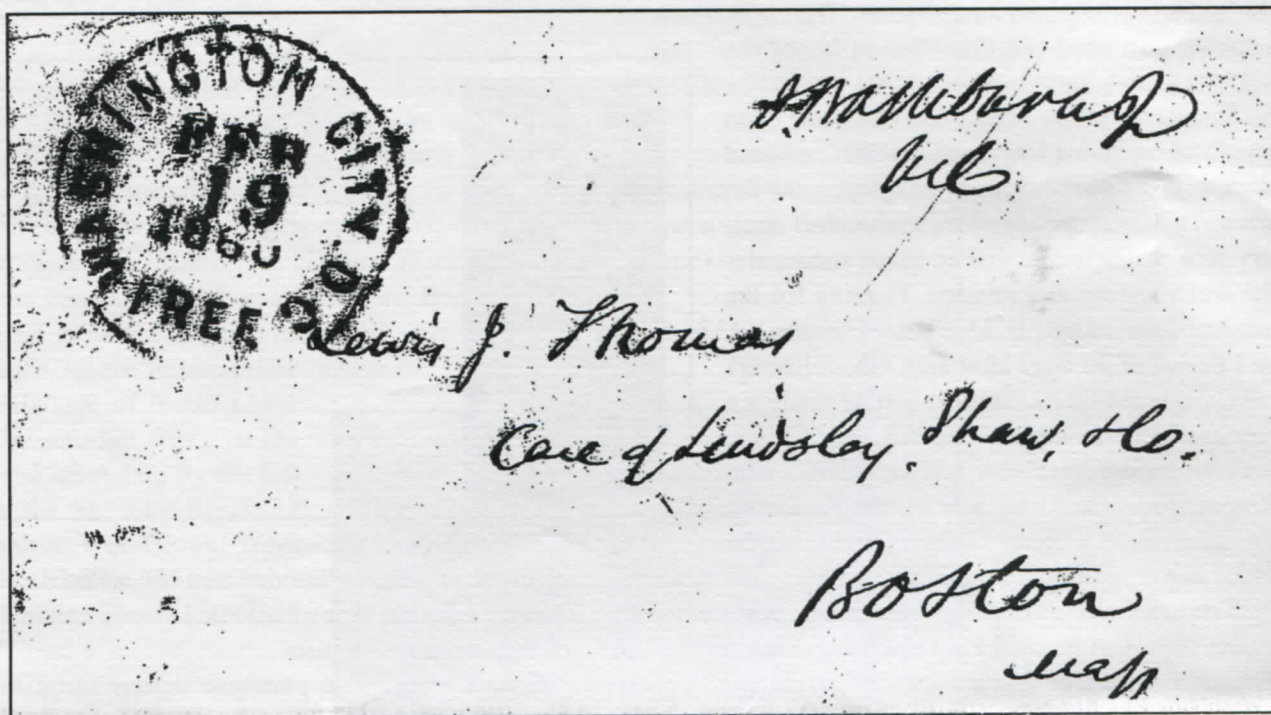 WASHINGTON CITY. D.C.
FEB
19
1860
FREE
I. Washburn Jr
MC
Lewis J. Thomas
Care of Lindsley, Shaw, & Co.
Boston
Mass